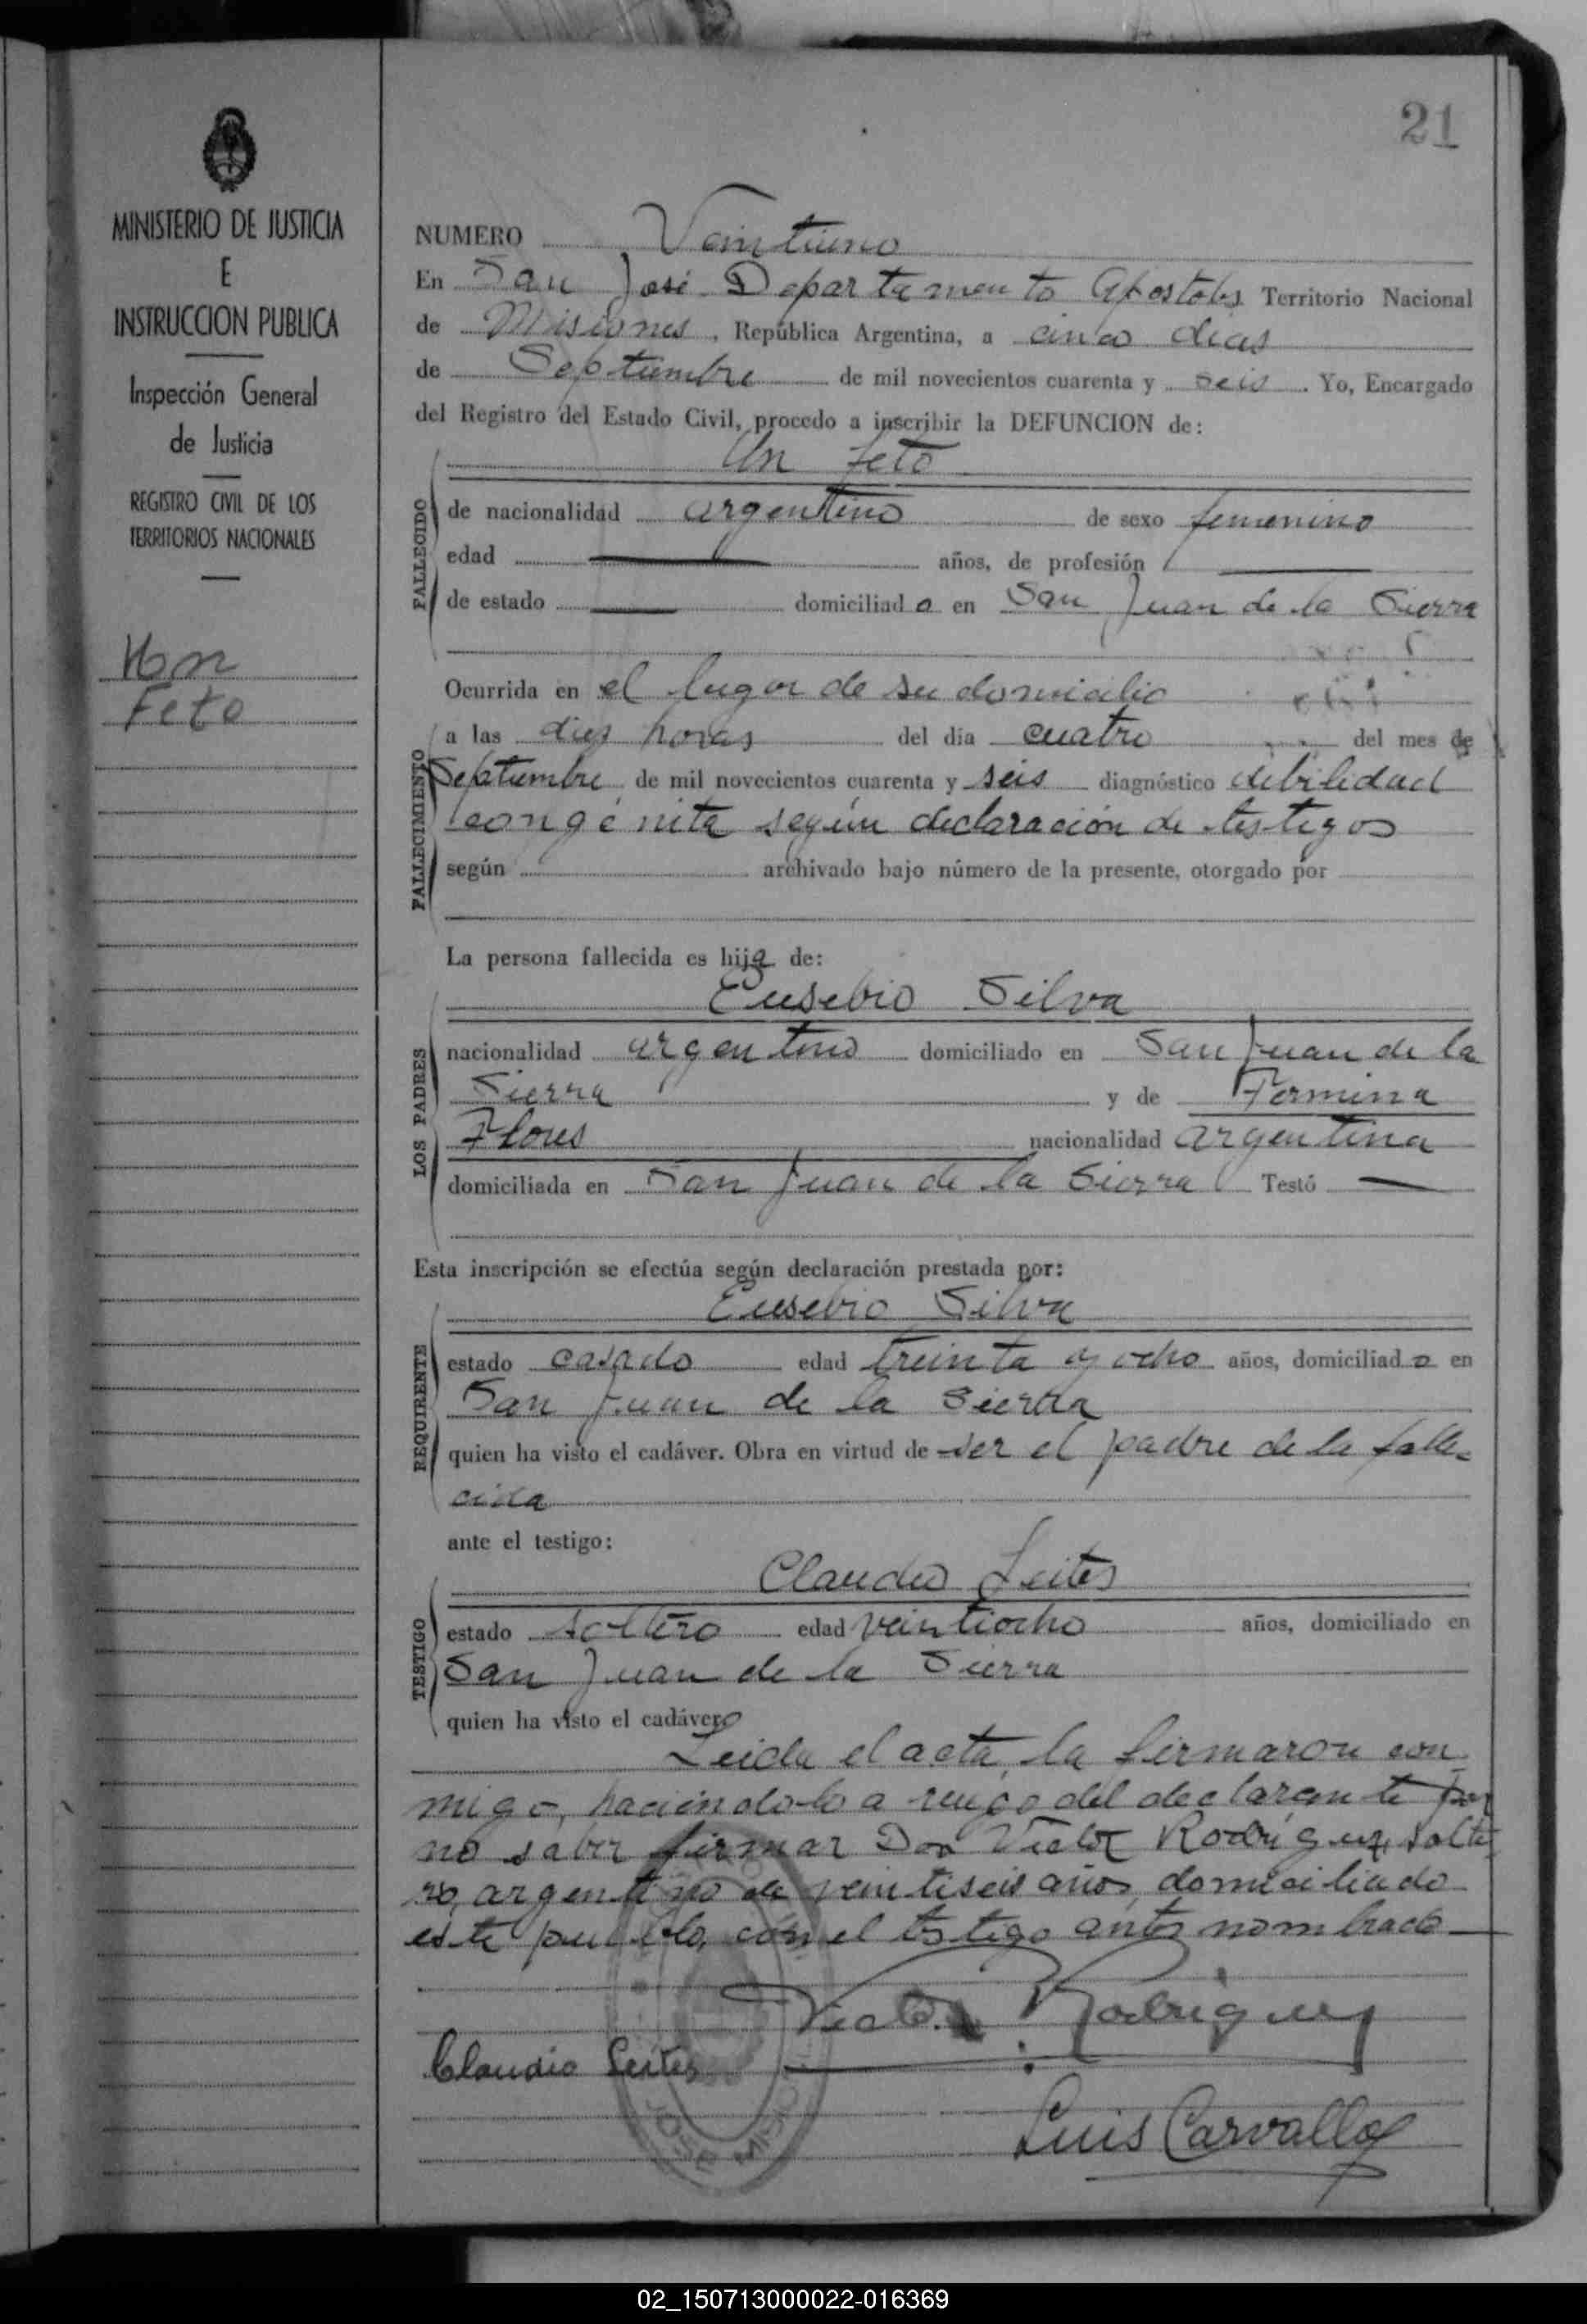 21
MINISTERIO DE JUSTICIA
E
INSTRUCCION PUBLICA
Inspección General
de Justicia
REGISTRO CIVIL DE LOS
TERRITORIOS NACIONALES
Un
Feto
NUMERO Veintiuno
En San José Departamento Apostoles Territorio Nacional
de Misiones, República Argentina, a cinco dias
de Septiembre de mil novecientos cuarenta y seis. Yo, Encargado
del Registro del Estado Civil, procedo a inscribir la DEFUNCION de:
Un feto
FALLECIDO
de nacionalidad argentino de sexo femenino
edad — años, de profesión —
de estado — domiciliado en San Juan de la Sierra
Ocurrida en el lugar de su domicilio
a las diez horas del día cuatro del mes de
FALLECIMIENTO
Septiembre de mil novecientos cuarenta y seis diagnóstico debilidad
congénita según declaración de testigos
según archivado bajo número de la presente, otorgado por
La persona fallecida es hija de:
Eusebio Silva
LOS PADRES
nacionalidad argentino domiciliado en San Juan de la
Sierra y de Fermina
Flores nacionalidad argentina
domiciliada en San Juan de la Sierra Testó —
Esta inscripción se efectúa según declaración prestada por:
Eusebio Silva
REQUIRENTE
estado casado edad treinta y ocho años, domiciliado en
San Juan de la Sierra
quien ha visto el cadáver. Obra en virtud de ser el padre de la falle-
cida
ante el testigo:
Claudio Leites
TESTIGO
estado soltero edad veintiocho años, domiciliado en
San Juan de la Sierra
quien ha visto el cadáver
Leida el acta, la firmaron con-
migo, haciéndolo a ruego del declarante por
no saber firmar Don Victor Rodriguez, solte-
ro, argentino de veintiseis años, domiciliado
este pueblo, con el testigo antes nombrado —
Victor Rodriguez
Claudio Leites
Luis Carvallo
02_150713000022-016369